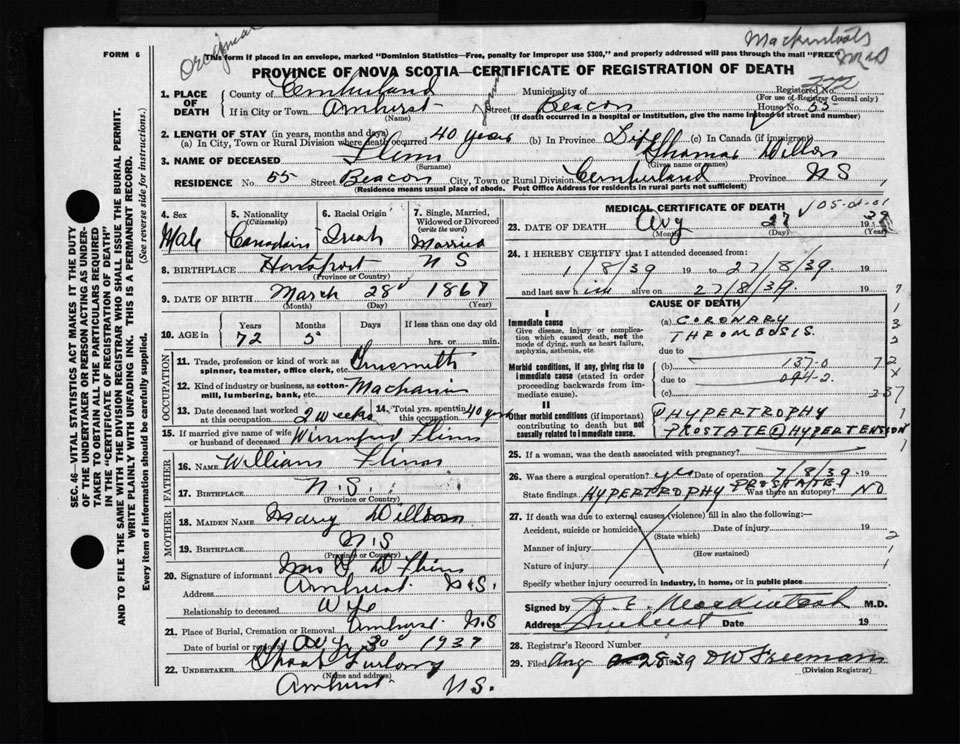 Mackintosh
FORM 6
This form if placed in an envelope, marked "Dominion Statistics—Free, penalty for improper use $300," and properly addressed will pass through the mail "FREE"
PROVINCE OF NOVA SCOTIA—CERTIFICATE OF REGISTRATION OF DEATH
1. PLACE OF DEATH County of Cumberland Municipality of Registered No.
(For use of Registrar General only)
If in City or Town Amherst Street Beacon House No. 55
(Name) (If death occurred in a hospital or institution, give the name instead of street and number)
2. LENGTH OF STAY (in years, months and days)
(a) In City, Town or Rural Division where death occurred 40 years (b) In Province Life (c) In Canada (if immigrant)
3. NAME OF DECEASED Thomas
(Surname) (Given name or names)
RESIDENCE No. 55 Street Beacon City, Town or Rural Division Cumberland Province N S
(Residence means usual place of abode. Post Office Address for residents in rural parts not sufficient)
SEC. 46—VITAL STATISTICS ACT MAKES IT THE DUTY
OF THE UNDERTAKER OR PERSON ACTING AS UNDERTAKER TO OBTAIN ALL THE PARTICULARS REQUIRED
IN THE "CERTIFICATE OF REGISTRATION OF DEATH"
AND TO FILE THE SAME WITH THE DIVISION REGISTRAR WHO SHALL ISSUE THE BURIAL PERMIT.
WRITE PLAINLY WITH UNFADING INK. THIS IS A PERMANENT RECORD.
Every item of information should be carefully supplied. (See reverse side for instructions.)
4. Sex 5. Nationality (Citizenship) 6. Racial Origin 7. Single, Married, Widowed or Divorced (write the word)
Male Canadian Irish Married
8. BIRTHPLACE N S
(Province or Country)
9. DATE OF BIRTH March 28 1867
(Month) (Day) (Year)
10. AGE in Years Months Days If less than one day old
72 5 hrs. or min.
OCCUPATION
11. Trade, profession or kind of work as spinner, teamster, office clerk, etc. Gunsmith
12. Kind of industry or business, as cotton mill, lumbering, bank, etc.
13. Date deceased last worked at this occupation 2 weeks 14. Total yrs. spent in this occupation 40 years
15. If married give name of wife or husband of deceased Winnifred
FATHER
16. NAME William
17. BIRTHPLACE N.S.
(Province or Country)
MOTHER
18. MAIDEN NAME Mary
19. BIRTHPLACE N.S
(Province or Country)
20. Signature of informant Mrs
Address Amherst N.S.
Relationship to deceased Wife
21. Place of Burial, Cremation or Removal Amherst N.S
Date of burial or removal 30 1939
22. UNDERTAKER Furlong
(Name and address)
Amherst N.S.
MEDICAL CERTIFICATE OF DEATH
23. DATE OF DEATH Aug 27 39
(Month) (Day) (Year)
24. I HEREBY CERTIFY that I attended deceased from:
1/8/39 19 to 27/8/39. 19
and last saw him alive on 27/8/39 19
CAUSE OF DEATH
I
Immediate cause
Give disease, injury or complication which caused death, not the mode of dying, such as heart failure, asphyxia, asthenia, etc
(a) CORONARY THROMBOSIS
due to
Morbid conditions, if any, giving rise to immediate cause (stated in order proceeding backwards from immediate cause).
(b) 137-0
due to 094-2
(c)
II
Other morbid conditions (if important) contributing to death but not causally related to immediate cause.
HYPERTROPHY
PROSTATE HYPERTENSION
25. If a woman, was the death associated with pregnancy?
26. Was there a surgical operation? yes Date of operation 7/8/39 19
State findings HYPERTROPHY PROSTATE Was there an autopsy? NO
27. If death was due to external causes (violence) fill in also the following:—
Accident, suicide or homicide Date of injury 19
(State which)
Manner of injury
(How sustained)
Nature of injury
Specify whether injury occurred in industry, in home, or in public place
Signed by Mackintosh M.D.
Address Amherst Date 19
28. Registrar's Record Number
29. Filed Aug 28 39 D W Freeman
(Division Registrar)